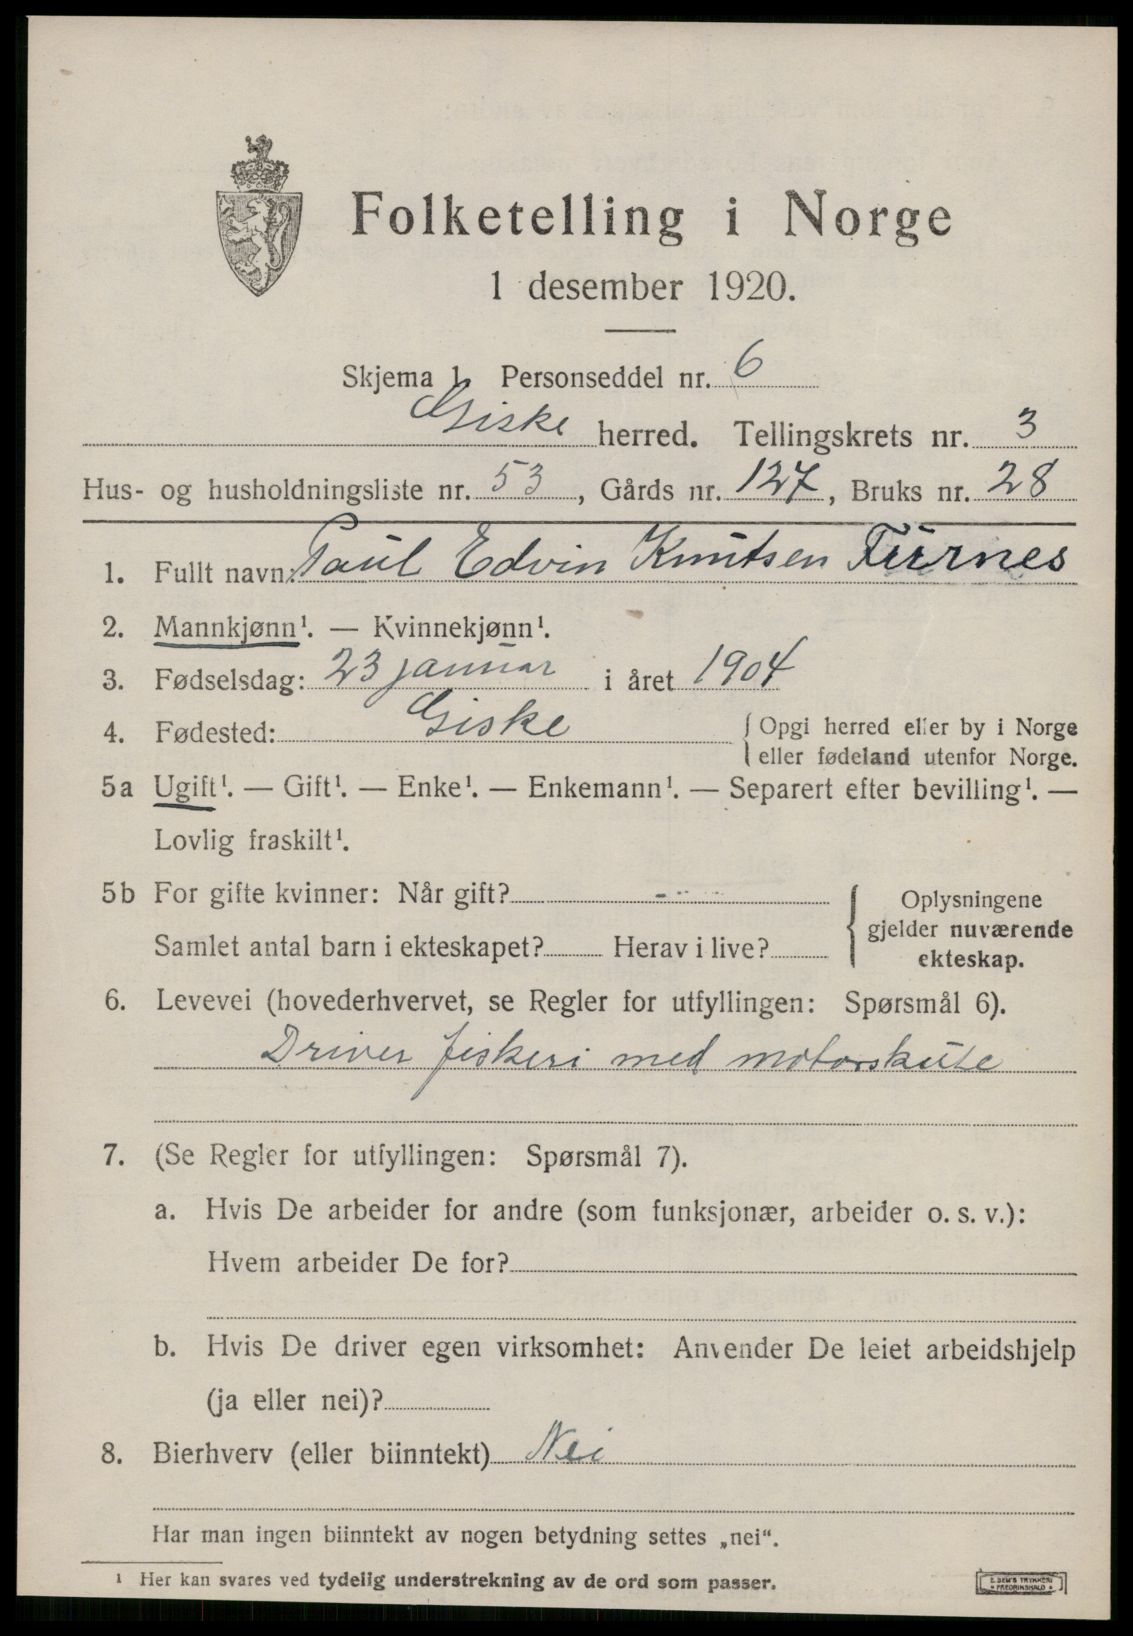 Folketelling i Norge
1 desember 1920.
Skjema 1. Personseddel nr. 6
Giske herred. Tellingskrets nr. 3
Hus- og husholdningsliste nr. 53, Gårds nr. 127, Bruks nr. 28
1. Fullt navn: Paul Edvin Knutsen Furnes
2. Mannkjønn¹. — Kvinnekjønn¹.
3. Fødselsdag: 23 januar i året 1904
4. Fødested: Giske { Opgi herred eller by i Norge
eller fødeland utenfor Norge.
5a Ugift¹. — Gift¹. — Enke¹. — Enkemann¹. — Separert efter bevilling¹. —
Lovlig fraskilt¹.
5b For gifte kvinner: Når gift?
Samlet antal barn i ekteskapet? Herav i live?
Oplysningene
gjelder nuværende
ekteskap.
6. Levevei (hovederhvervet, se Regler for utfyllingen: Spørsmål 6).
Driver fiskeri med motorskute
7. (Se Regler for utfyllingen: Spørsmål 7).
a. Hvis De arbeider for andre (som funksjonær, arbeider o. s. v.):
Hvem arbeider De for?
b. Hvis De driver egen virksomhet: Anvender De leiet arbeidshjelp
(ja eller nei)?
8. Bierhverv (eller biinntekt) Nei
Har man ingen biinntekt av nogen betydning settes „nei“.
¹ Her kan svares ved tydelig understrekning av de ord som passer.
E. SEM'S TRYKKERI
FREDRIKSHALD